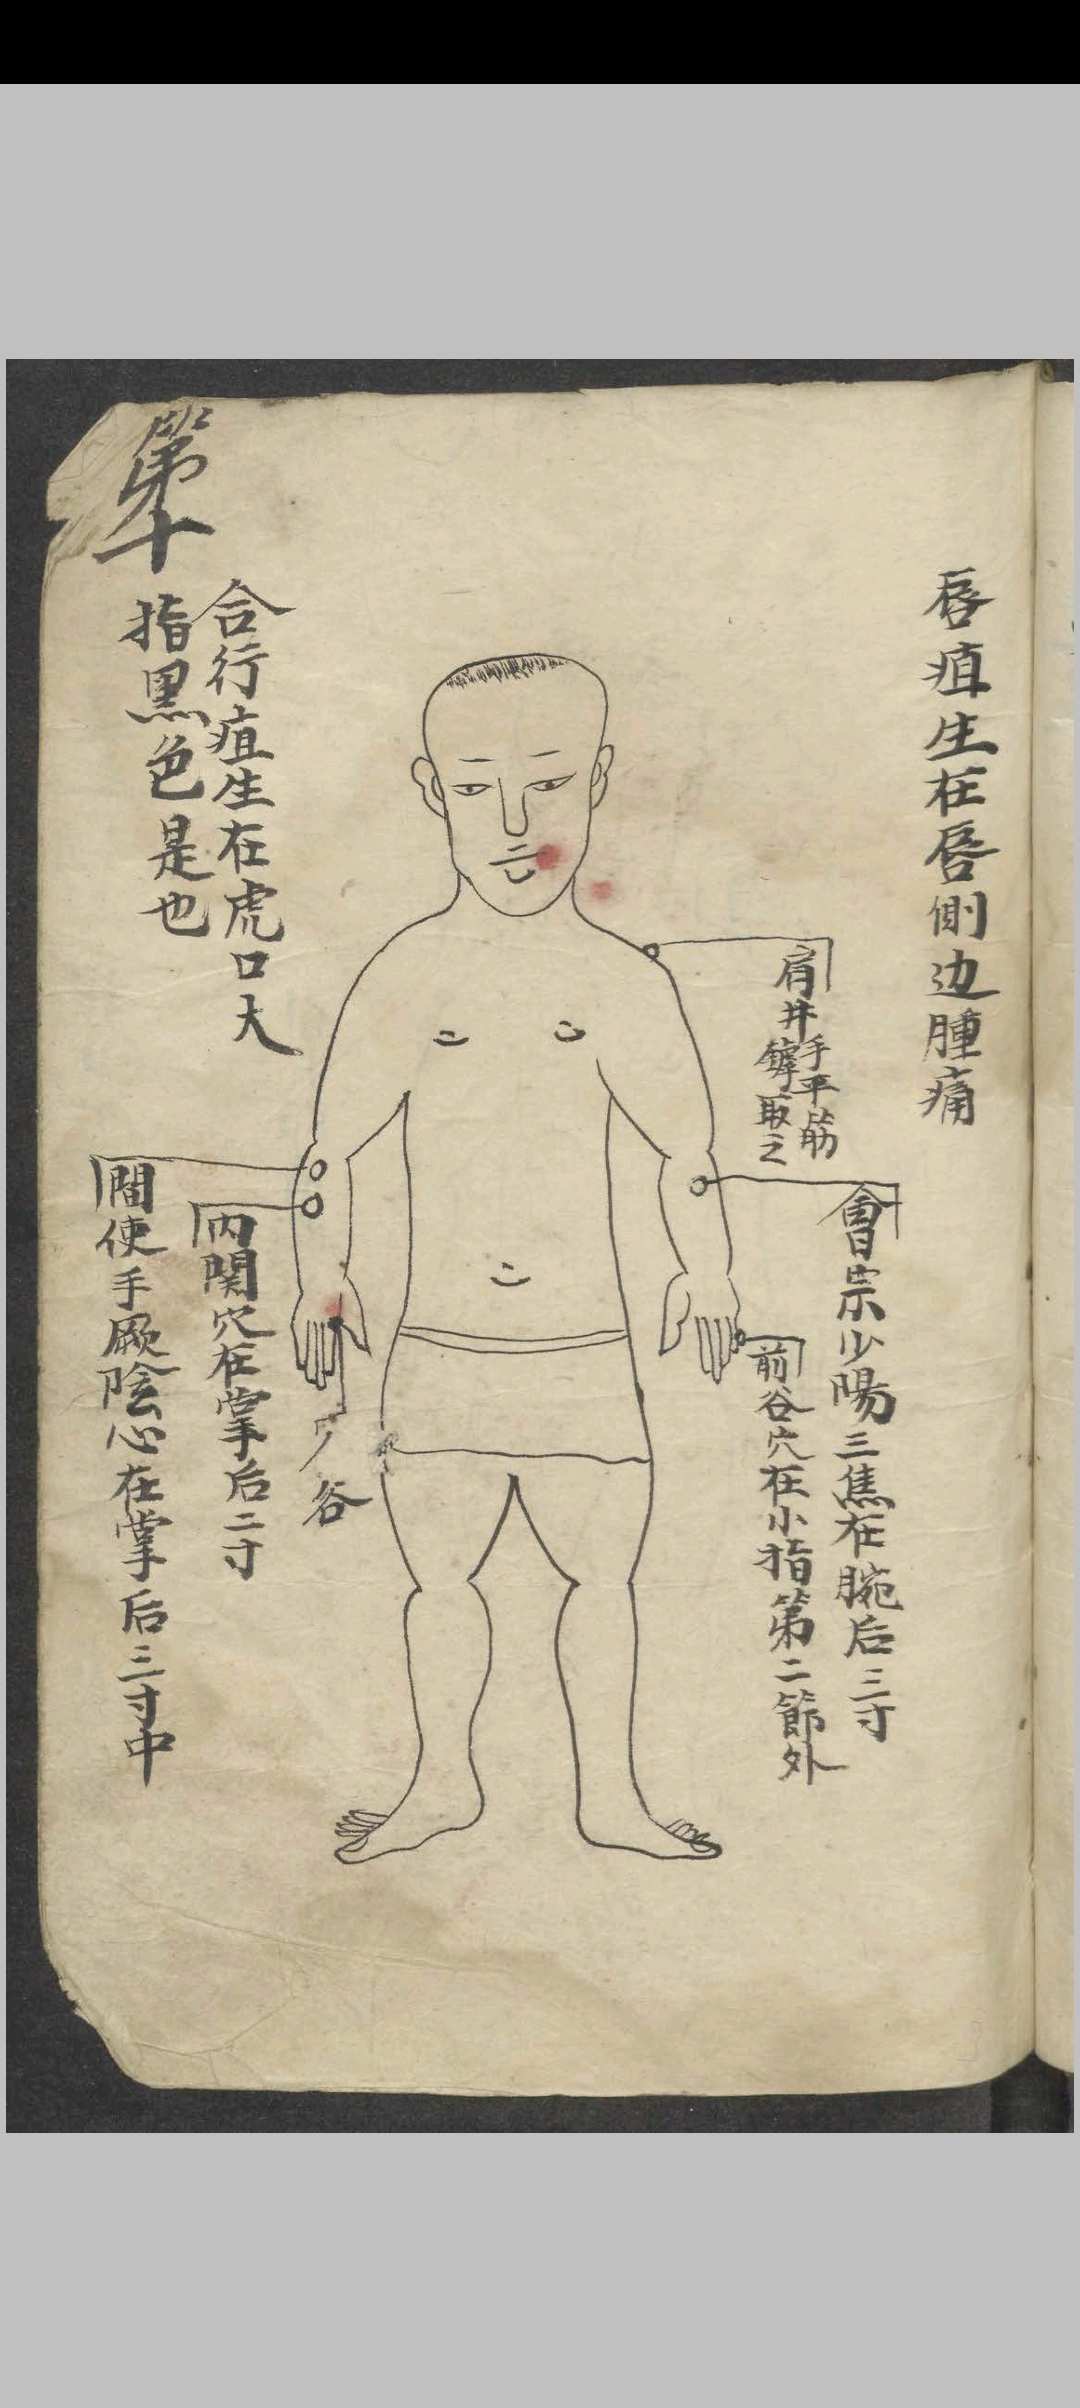 唇疽生在唇側边腫痛
肩井手平筋
鏬取之
會宗少陽三焦在腕后三寸
前谷穴在小指第二節外
谷
內関穴在掌后二寸
間使手厥陰心在掌后三寸中
合行疽生在虎口大
指黒色是也
第十